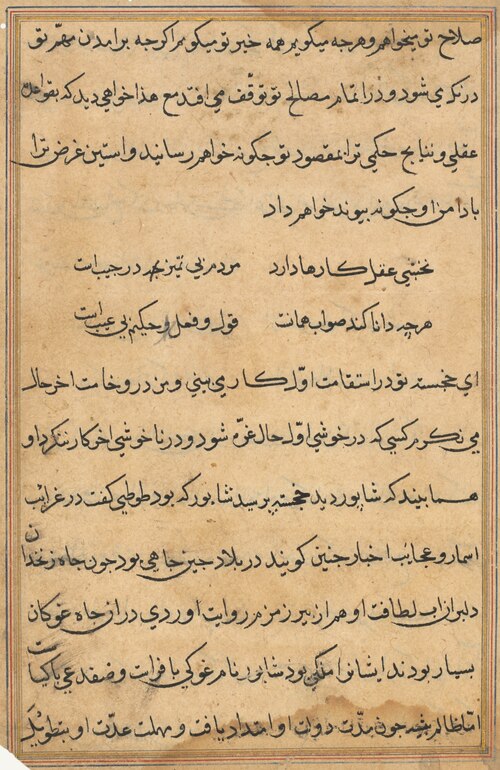 صلاح تو میخواهم و هرچه میکویم همه خیر تو میکویم اکرچه برامدن مهم تو
در نکری شود و در اتمام مصالح تو توقف می افتد مع هذا خواهی دید که بقواعد
عقلی و نتایج حکمی ترا بمقصود تو چکونه خواهم رسانید و استین غرض ترا
با دامن او چکونه پیوند خواهم داد
نخشبی عقل کارها دارد مردم بی تمیز بجه در جیب است
هرچه دانا کند صواب همانست قول و فعل حکیم بی عیب است
ای خجسته تو در استقامت اول کار می بینی و من در وخامت اخر حال
می نکرم کسی که در خوشی اول حال غره شود و در ناخوشی اخر کار ننکرد او
همابیند که شاپور دید خجسته پرسید شاپور که بود طوطی کفت در غرایب
اسمار و عجایب اخبار چنین کویند در بلاد چین چاهی بود چون چاه زنخدان
دلبر از اب لطافت او هم از بیر زمزم روایت اوردی در ان چاه غوکان
بسیار بودند ایشانرا ملکی بود شاپور نام غوکی با فراست وضفدعی با کیاست
اما ظالم پیشه چون مدت دولت او امتداد یافت و مهلت عدت او بتطویل